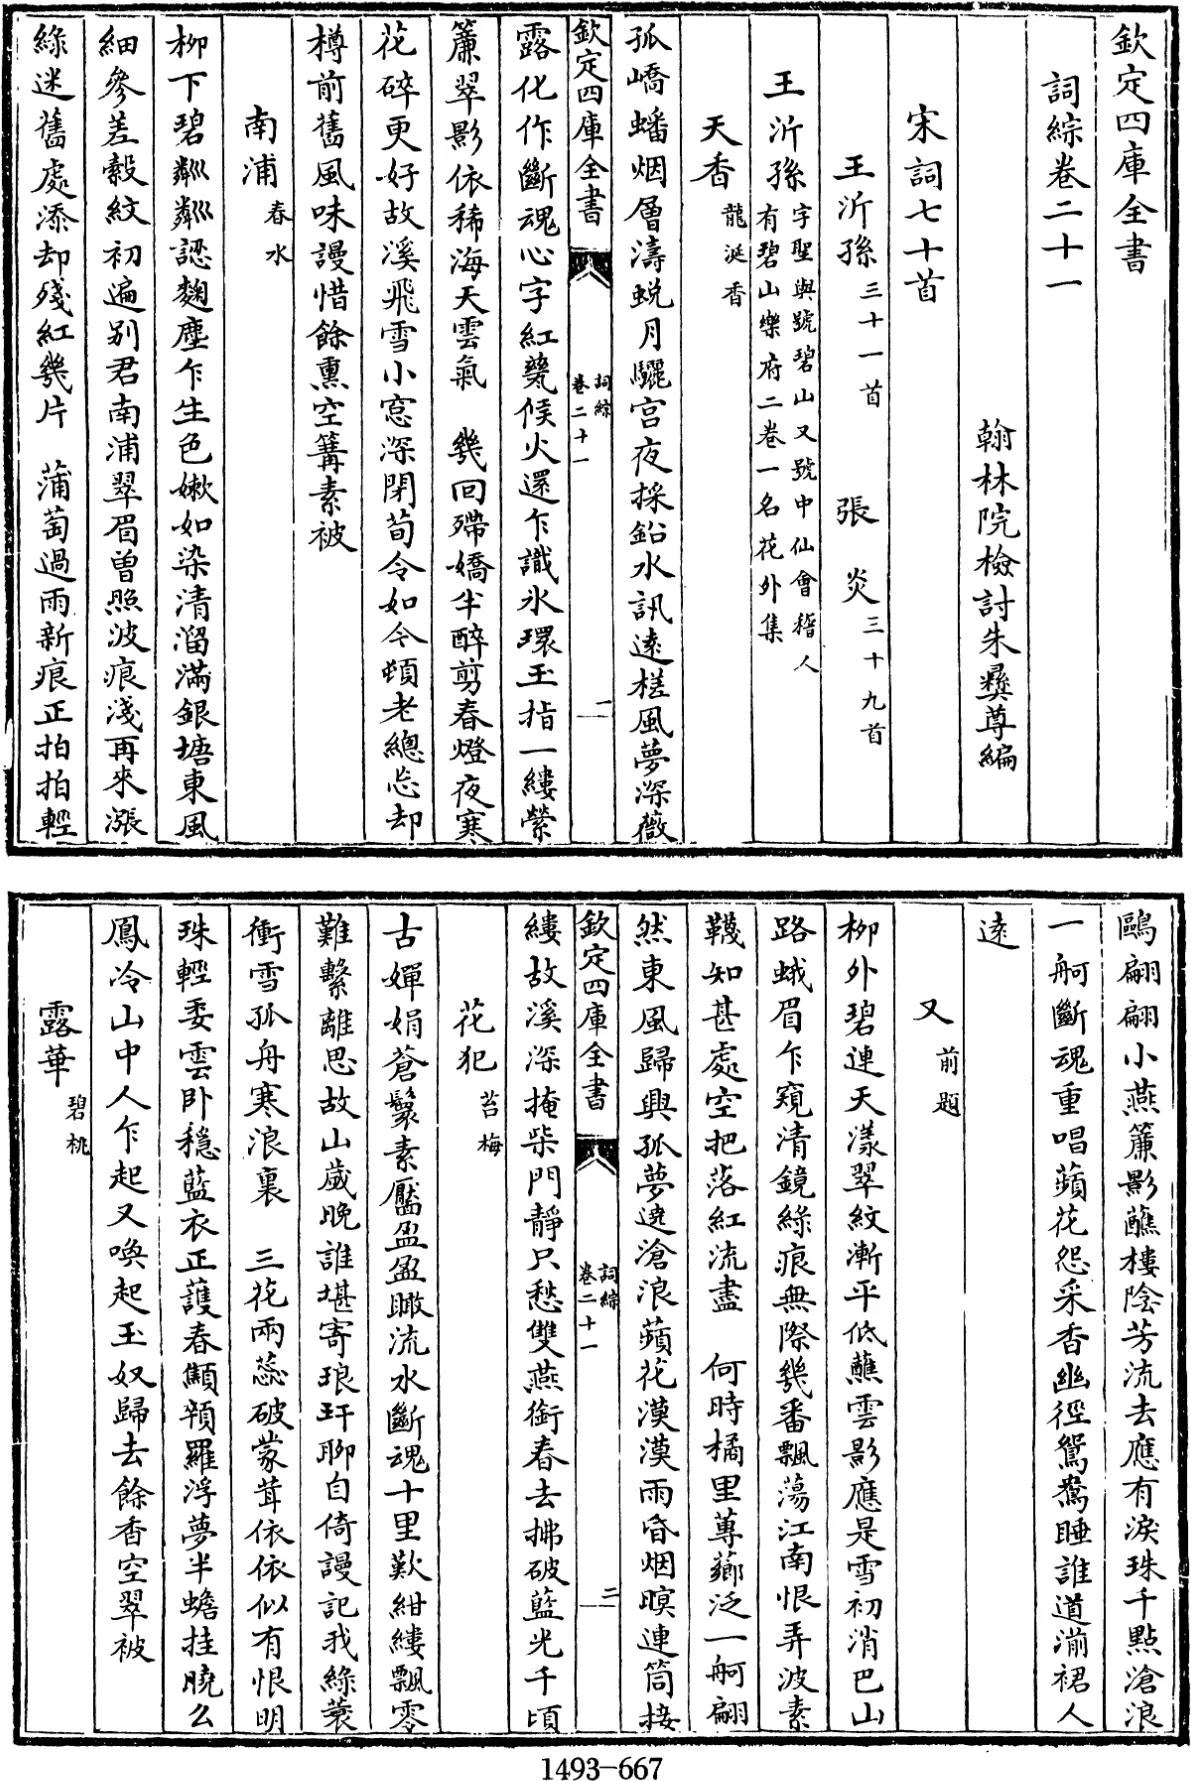 欽定四庫全書
詞綜卷二十一
翰林院檢討朱彞尊編
宋詞七十首
王沂孫三十一首 張炎三十九首
王沂孫字聖與號碧山又號中仙會稽人有碧山樂府二卷一名花外集
天香龍涎香
孤嶠蟠烟層濤蛻月驪宫夜採鉛水訊逺槎風夢深薇
欽定四庫全書 詞綜卷二十一 一
露化作斷魂心字紅甆候火還乍識氷環玉指一縷縈
簾翠影依稀海天雲氣 幾回殢嬌半醉剪春燈夜寒
花碎更好故溪飛雪小窓深閉荀令如今頓老總忘却
樽前舊風味謾惜餘熏空篝素被
南浦春水
栁下碧粼粼認麴塵乍生色嫩如染清溜滿銀塘東風
細參差縠紋初遍别君南浦翠眉曽照波痕淺再來漲
綠迷舊處添却殘紅幾片 蒲萄過雨新痕正拍拍輕
鷗翩翩小燕簾影蘸樓陰芳流去應有淚珠千點滄浪
一舸斷魂重唱蘋花怨采香幽徑鴛鴦睡誰道湔裙人
逺
又前題
栁外碧連天漾翠紋漸平低蘸雲影應是雪初消巴山
路蛾眉乍窺清鏡綠痕無際幾番飄蕩江南恨弄波素
韈知甚處空把落紅流盡 何時橘里蓴鄉泛一舸翩
然東風歸興孤夢遶滄浪蘋花漠漠雨昏烟暝連筒接
欽定四庫全書 詞綜卷二十一 二
縷故溪深掩柴門靜只愁雙燕銜春去拂破藍光千頃
花犯苔梅
古嬋娟蒼鬟素靨盈盈瞰流水斷魂十里歎紺縷飄零
難繫離思故山歲晚誰堪寄琅玕聊自倚謾記我綠蓑
衝雪孤舟寒浪裏 三花兩蕊破蒙茸依依似有恨明
珠輕委雲卧穩藍衣正護春顦顇羅浮夢半蟾挂曉么
鳳冷山中人乍起又喚起玉奴歸去餘香空翠被
露華碧桃
1493-667